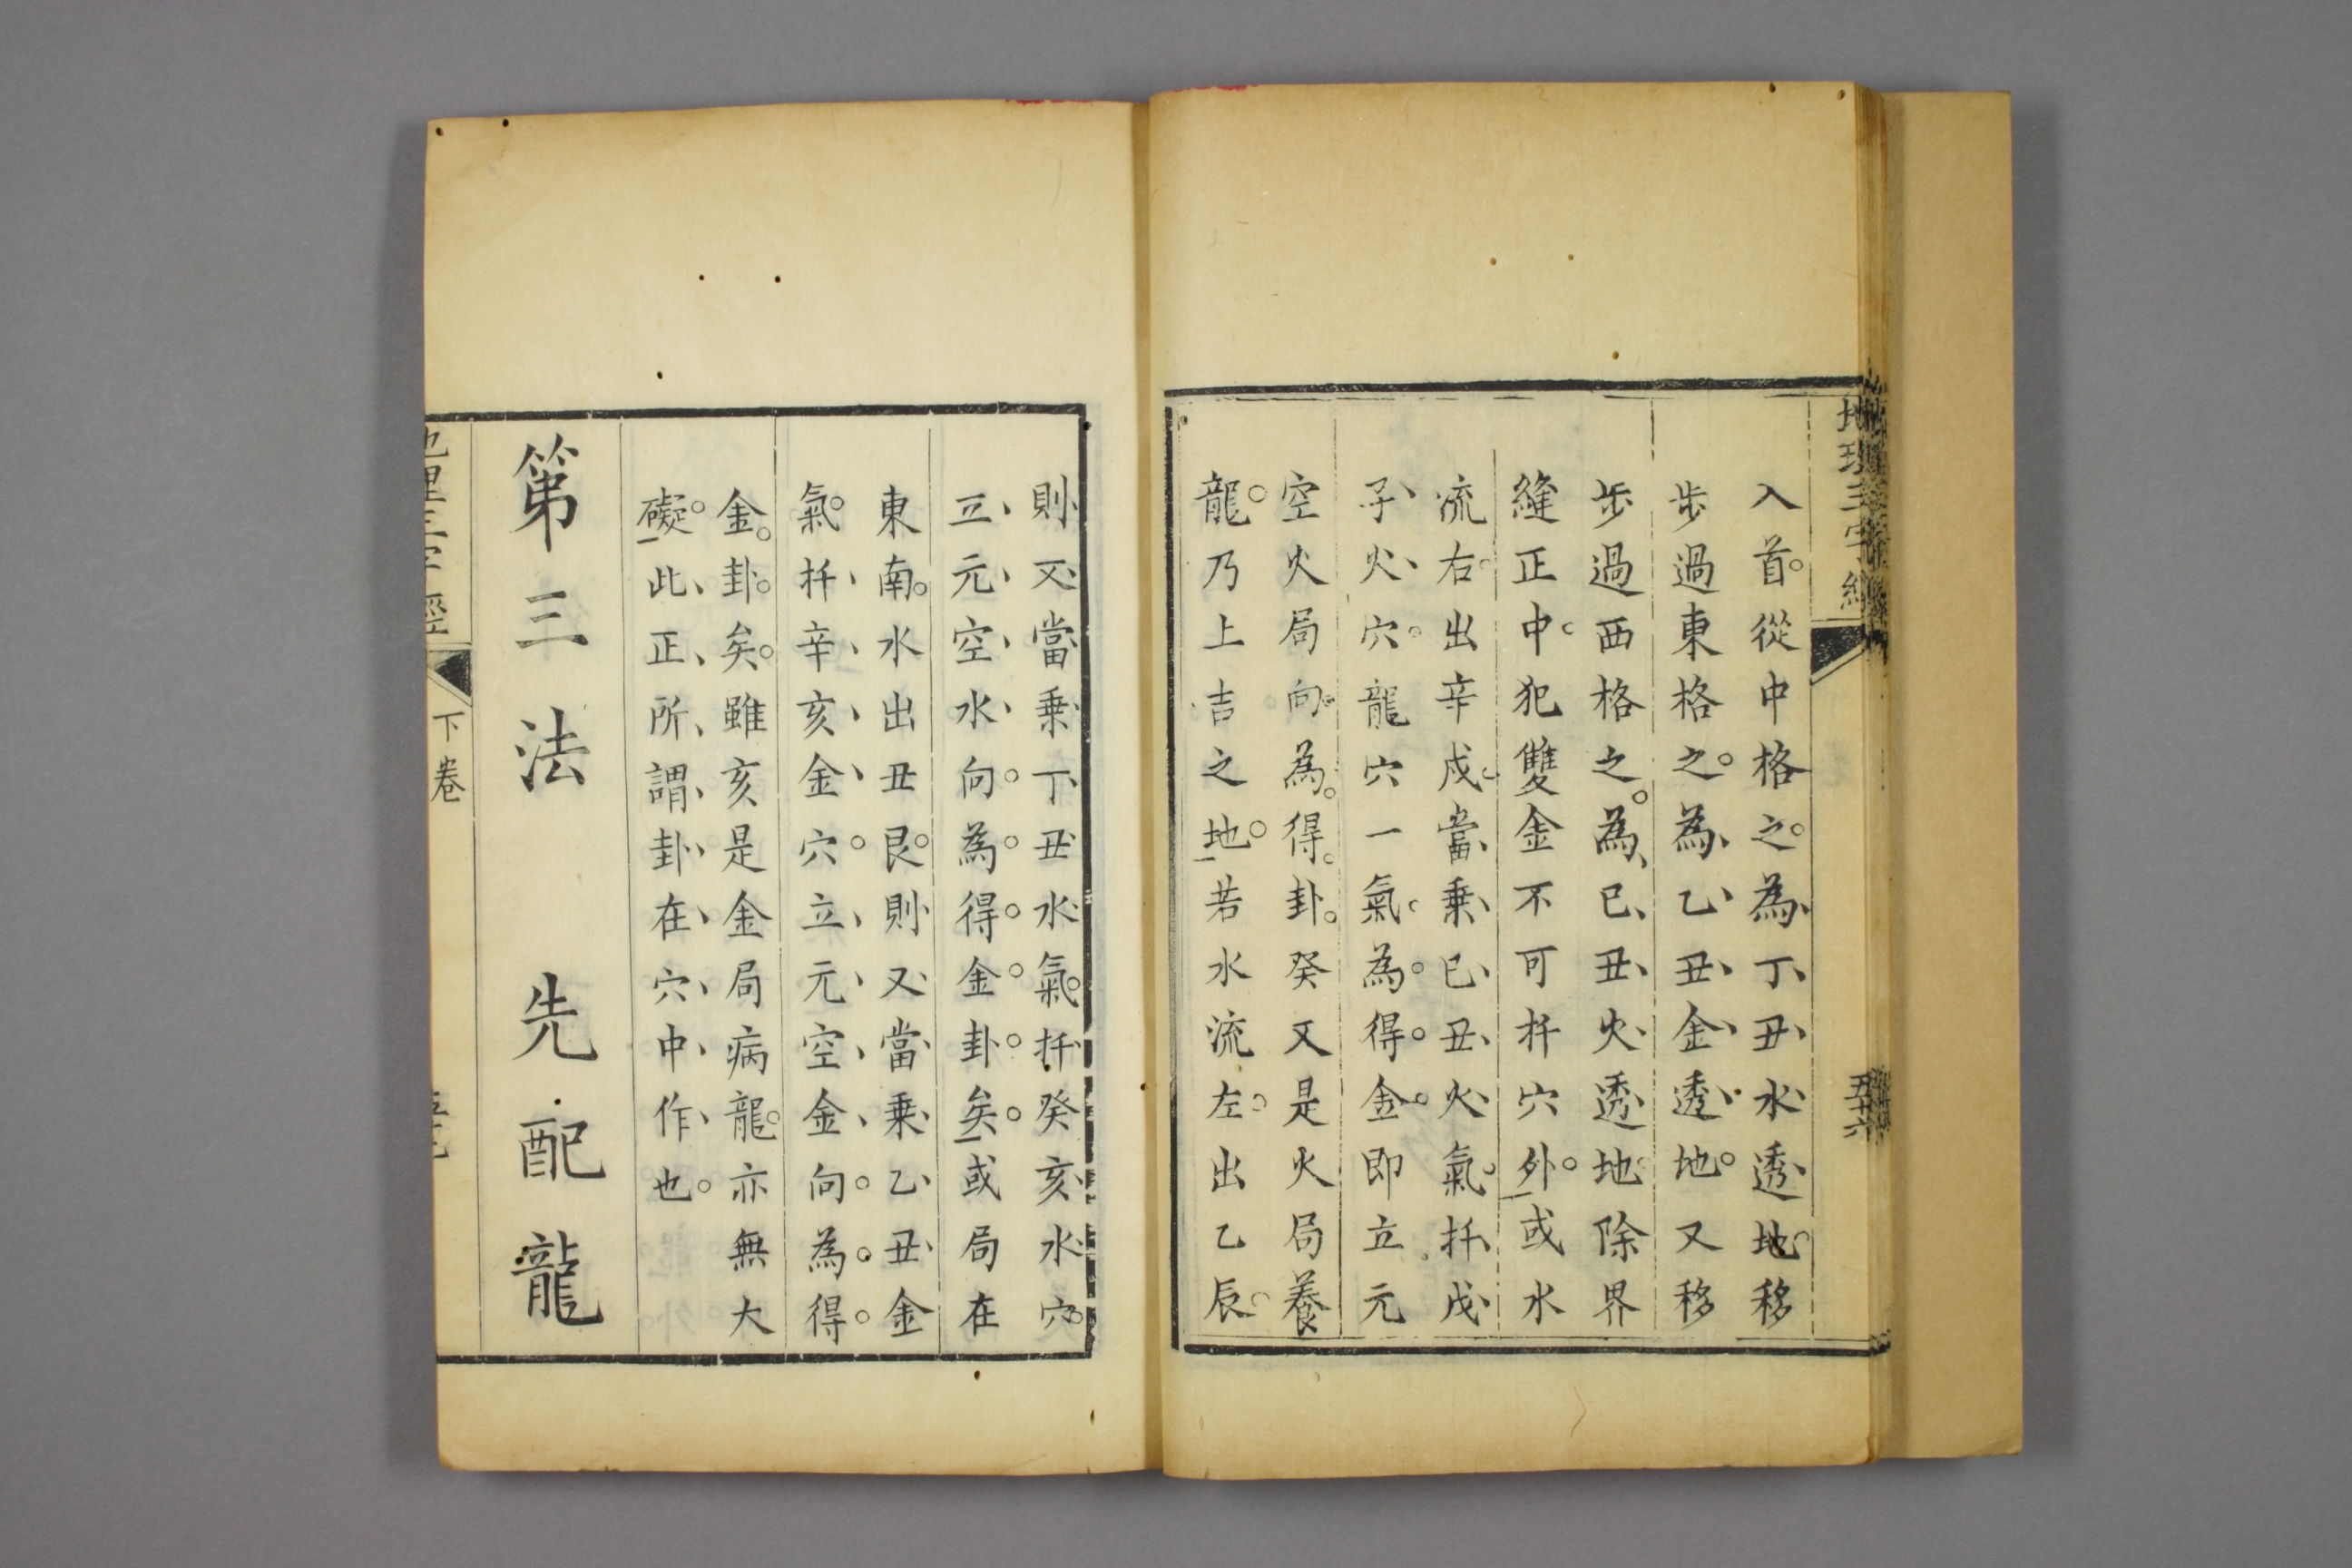 地理三字經
五十六
入首從中格之為丁丑水透地移
步過東格之為乙丑金透地又移
步過西格之為己丑火透地除界
縫正中犯雙金不可扦穴外或水
流右出辛戌當乘己丑火氣扦戊
子火穴龍穴一氣為得金即立元
空火局向為得卦癸又是火局養
龍乃上吉之地若水流左出乙辰
則又當乘丁丑水氣扦癸亥水穴
立元空水向為得金卦矣或局在
東南水出丑艮則又當乘乙丑金
氣扦辛亥金穴立元空金向為得
金卦矣雖亥是金局病龍亦無大
礙此正所謂卦在穴中作也
第三法 先配龍
地理三字經
下卷